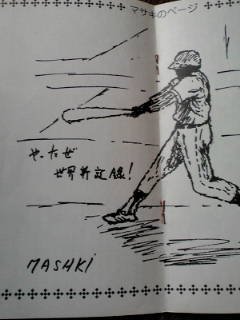 マサキのページ
やったぜ
世界新記録!
MASAKI